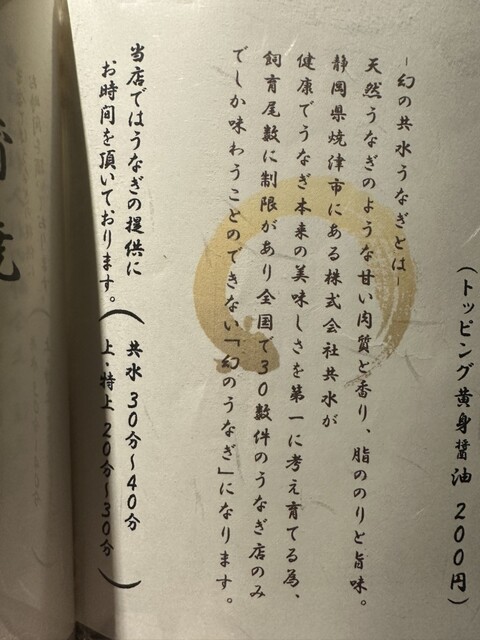 (トッピング黄身醤油 200円)
–幻の共水うなぎとは–
天然うなぎのような甘い肉質と香り、脂ののりと旨味。
静岡県焼津市にある株式会社共水が
健康でうなぎ本来の美味しさを第一に考え育てる為、
飼育尾数に制限があり全国で30数件のうなぎ店のみ
でしか味わうことのできない「幻のうなぎ」になります。
当店ではうなぎの提供に
お時間を頂いております。
(共水 30分～40分
上・特上 20分～30分)